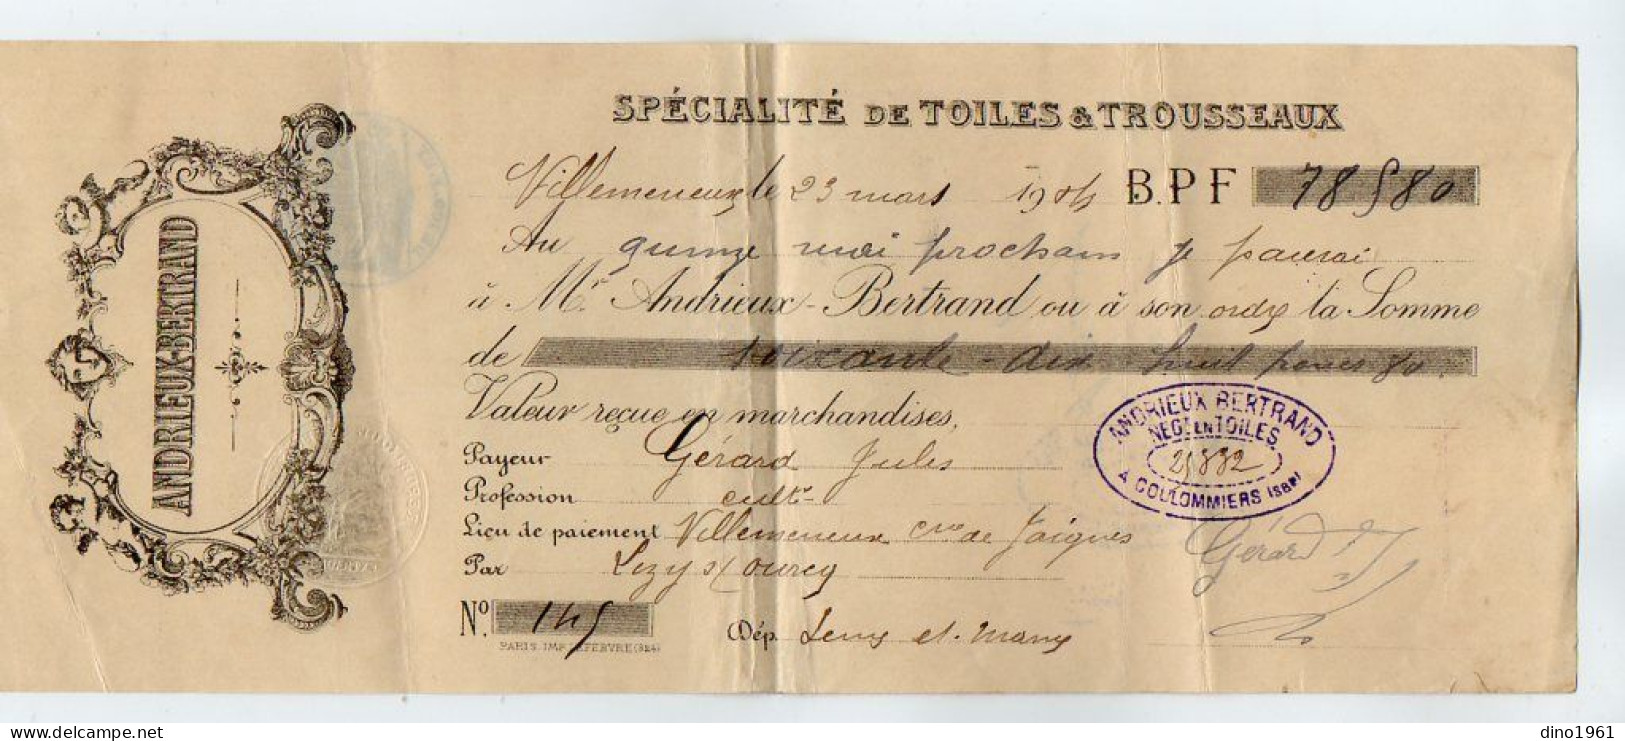 ANDRIEUX-BERTRAND
SPÉCIALITÉ DE TOILES & TROUSSEAUX
Villemeneux, le 23 mars 1904 B.P F 78 f 80
Au quinze mai prochain je paierai
à Mr Andrieux-Bertrand ou à son ordre la Somme
de soixante-dix huit francs 80
Valeur reçue en marchandises,
Payeur Gérard Jules
Profession cultr
Lieu de paiement Villemeneux Cne de Jaignes
Par Lizy s/ Ourcq
No. 145 Dép. Seine et Marne
PARIS. IMP. LEFEBVRE (824)
ANDRIEUX BERTRAND
NEGt EN TOILES
21882
A COULOMMIERS (S&M)
Gérard J
dino1961